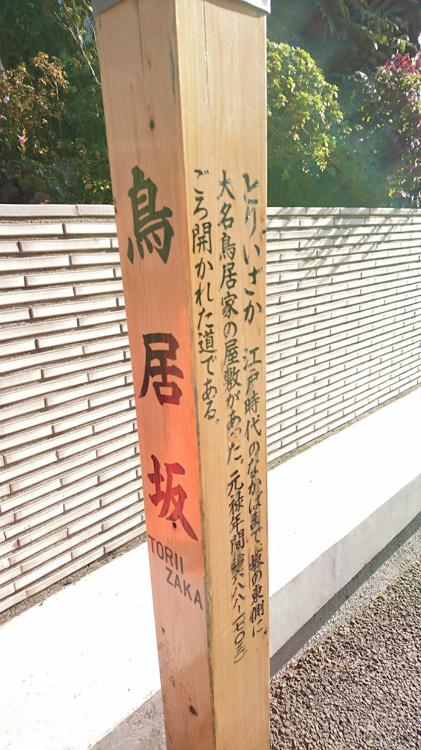 鳥居坂
TORII
ZAKA
とりいざか 江戸時代のなかばまで、坂の東側に
大名鳥居家の屋敷があった。元禄年間
ごろ開かれた道である。